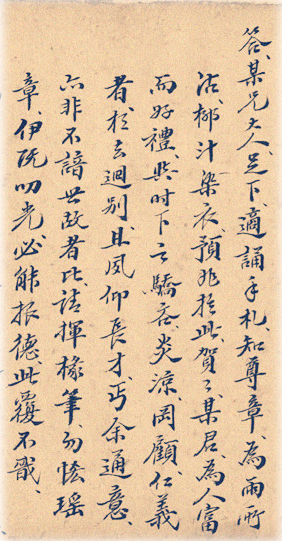 答某兄大人足下適誦手札知尊章為雨所
沾柳汁染衣預兆於此賀〻某君為人富
而好禮與時下之驕吝炎涼罔顧仁義
者相去迴別且夙仰長才丐余通意
亦非不諳世故者比請揮椽筆勿惜瑤
章伊既叨光必能報德此覆不戩